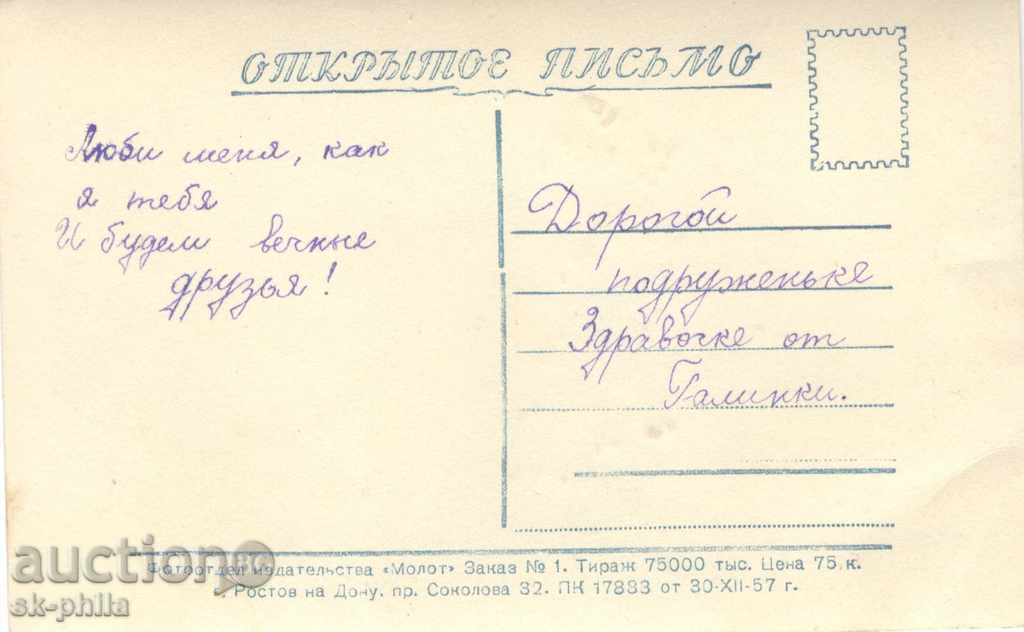 ОТКРЫТОЕ ПИСЬМО
Люби меня, как
я тебя
И будем вечные
друзья!
Дорогой
подруженьке
Здравочке от
Галинки.
Фотоотдел издательства «Молот» Заказ № 1. Тираж 75000 тыс. Цена 75 к.
Ростов на Дону, пр. Соколова 32. ПК 17883 от 30-XII-57 г.
auction.bg
sk-phila